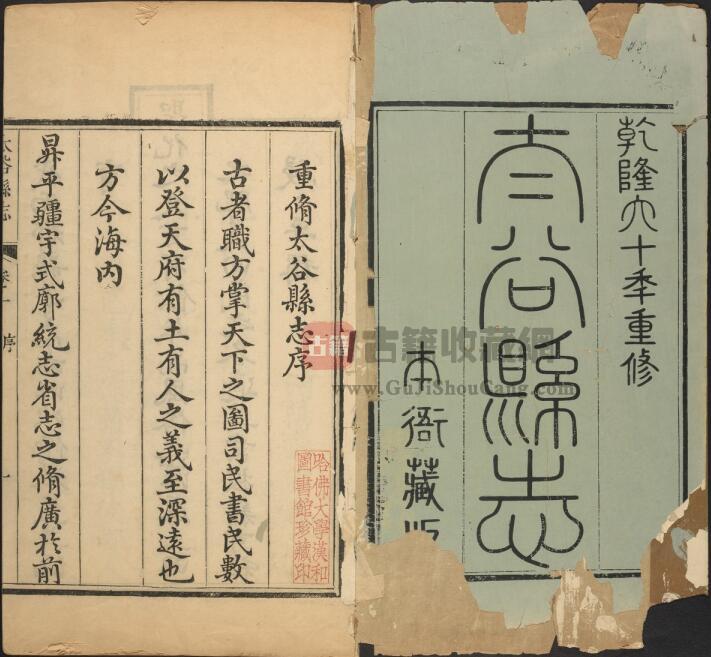 乾隆六十年重修
太谷縣志
本衙藏版
重脩太谷縣志序
古者職方掌天下之圖司民書民數
以登天府有土有人之義至深遠也
方今海内
昇平疆宇式廓統志省志之脩廣於前
太谷縣志
序
一
哈佛大學漢和
圖書館珍藏印
古籍
古籍收藏網
www.GuJiShouCang.com